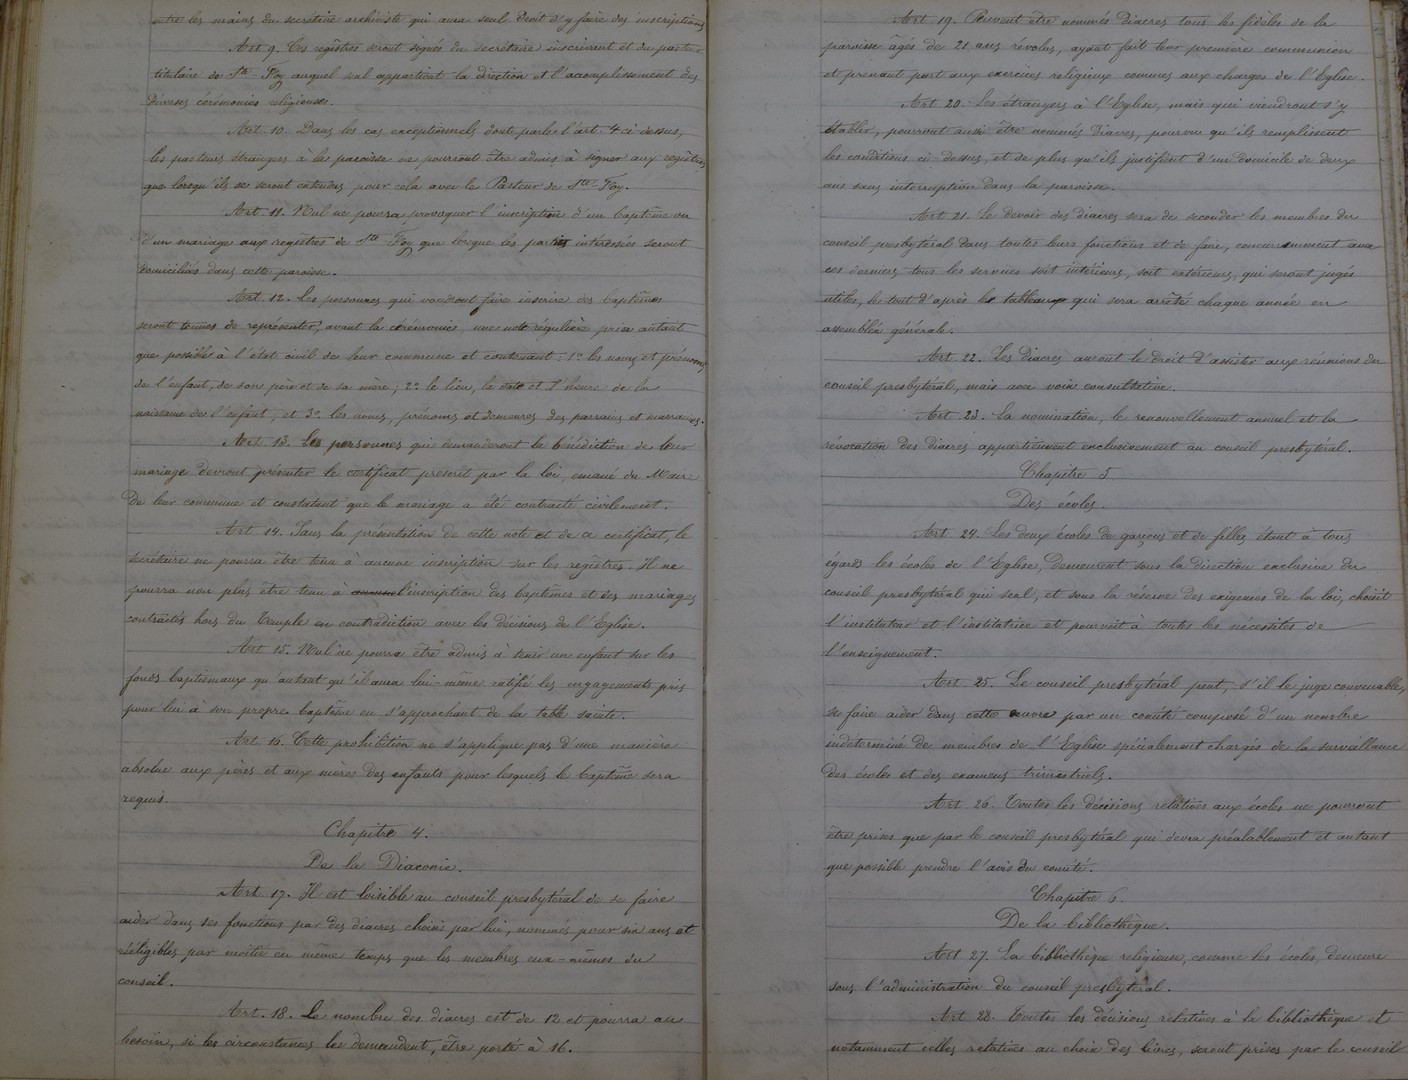 entre les mains du secrétaire archiviste qui aura seul droit d'y faire des inscriptions
Art 9. Ces registres seront signés du secrétaire inscrivant et du pasteur
titulaire de Ste-Foy auquel seul appartient la direction et l'acomplissement des
diverses cérémonies religieuses.
Art. 10. Dans les cas exceptionnels dont parle l'art. 4 ci-dessus,
les pasteurs étrangers à la paroisse ne pourront être admis à signer aux registres
que lorsqu'ils se seront entendus pour cela avec le Pasteur de Ste-Foy.
Art. 11. Nul ne pourra provoquer l'inscription d'un baptême ou
d'un mariage aux registres de Ste Foy que lorsque les parties intéressées seront
domiciliées dans cette paroisse.
Art. 12. Les personnes qui voudront faire inscrire des baptêmes
seront tenues de représenter, avant la cérémonie, une note régulière prise autant
que possible à l'état civil de leur commune et contenant : 1º les noms et prénoms
de l'enfant, de son père et de sa mère ; 2º le lieu, la date et l'heure de la
naissance de l'enfant ; et 3º les noms, prénoms et demeures des parrains et marraines.
Art. 13. Les personnes qui demanderont la bénédiction de leur
mariage devront présenter le certificat prescrit par la loi, émané du Maire
de leur commune et constatant que le mariage a été contracté civilement.
Art 14. Sans la présentation de cette note et de ce certificat, le
secrétaire ne pourra être tenu à aucune inscription sur les registres. Il ne
pourra non plus être tenu à l'inscription des baptêmes et des mariages
contractés hors du Temple en contradiction avec les décisions de l'Eglise.
Art 15. Nul ne pourra être admis à tenir un enfant sur les
fonds baptismaux qu'autant qu'il aura lui-même ratifié les engagements pris
pour lui à son propre baptême en s'approchant de la table sainte.
Art 16. Cette prohibition ne s'applique pas d'une manière
absolue aux pères et aux mères des enfants pour lesquels le baptême sera
requis.
Chapitre 4.
De la Diaconie.
Art. 17. Il est loisible au conseil presbytéral de se faire
aider dans ses fonctions par des diacres choisis par lui, nommés pour six ans et
rééligibles par moitié en même temps que les membres eux-mêmes du
conseil.
Art. 18. Le nombre des diacres est de 12 et pourra au
besoin, si les circonstances le demandent, être porté à 16.
Art. 19. Peuvent être nommés Diacres tous les fidèles de la
paroisse âgés de 21 ans révolus, ayant fait leur première communion
et prenant part aux exercices religieux comme aux charges de l'Eglise.
Art 20. Les étrangers à l'Eglise, mais qui viendront s'y
établir, pourront aussi être nommés Diacres, pourvu qu'ils remplissent
les conditions ci-dessus, et de plus qu'ils justifient d'un domicile de deux
ans sans interruption dans la paroisse.
Art 21. Le devoir des diacres sera de seconder les membres du
conseil presbytéral dans toutes leurs fonctions et de faire, concurremment avec
ces derniers tous les services soit intérieurs, soit extérieurs, qui seront jugés
utiles, le tout d'après le tableau qui sera arrêté chaque année en
assemblée générale.
Art. 22. Les diacres auront le droit d'assister aux réunions du
conseil presbytéral, mais avec voix consultative.
Art. 23. La nomination, le renouvellement annuel et la
révocation des diacres appartiennent exclusivement au conseil presbytéral.
Chapitre 5
Des écoles.
Art 24. Les deux écoles de garçons et de filles étant à tous
égards les écoles de l'Eglise, demeurent sous la direction exclusive du
conseil presbytéral qui seul, et sous la réserve des exigences de la loi, choisit
l'instituteur et l'institutrice et pourvoit à toutes les nécessités de
l'enseignement.
Art 25. Le conseil presbytéral peut, s'il le juge convenable,
se faire aider dans cette œuvre par un comité composé d'un nombre
indéterminé de membres de l'Eglise spécialement chargés de la surveillance
des écoles et des examens trimestriels.
Art 26. Toutes les décisions relatives aux écoles ne pourront
être prises que par le conseil presbytéral qui devra préalablement et autant
que possible prendre l'avis du comité.
Chapitre 6.
De la bibliothèque.
Art 27. La bibliothèque religieuse, comme les écoles, demeure
sous l'administration du conseil presbytéral.
Art 28. Toutes les décisions relatives à la bibliothèque et
notamment celles relatives au choix des livres, seront prises par le conseil